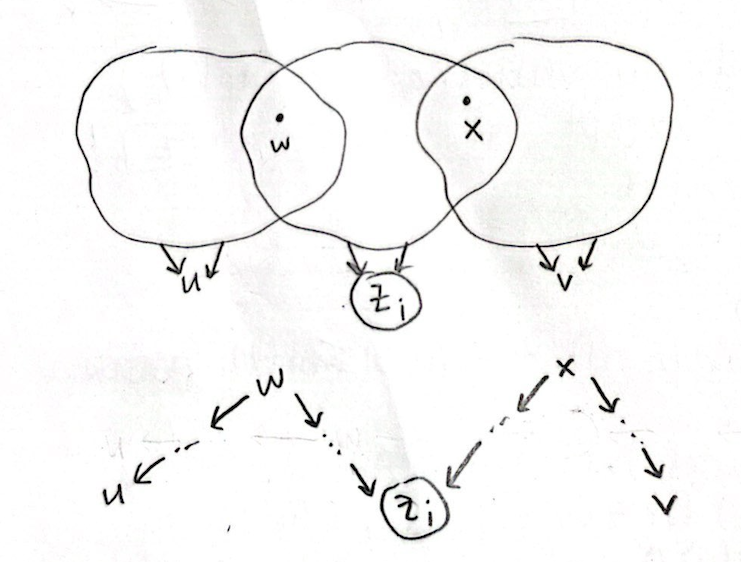 w x
u z_i v
w x
u z_i v